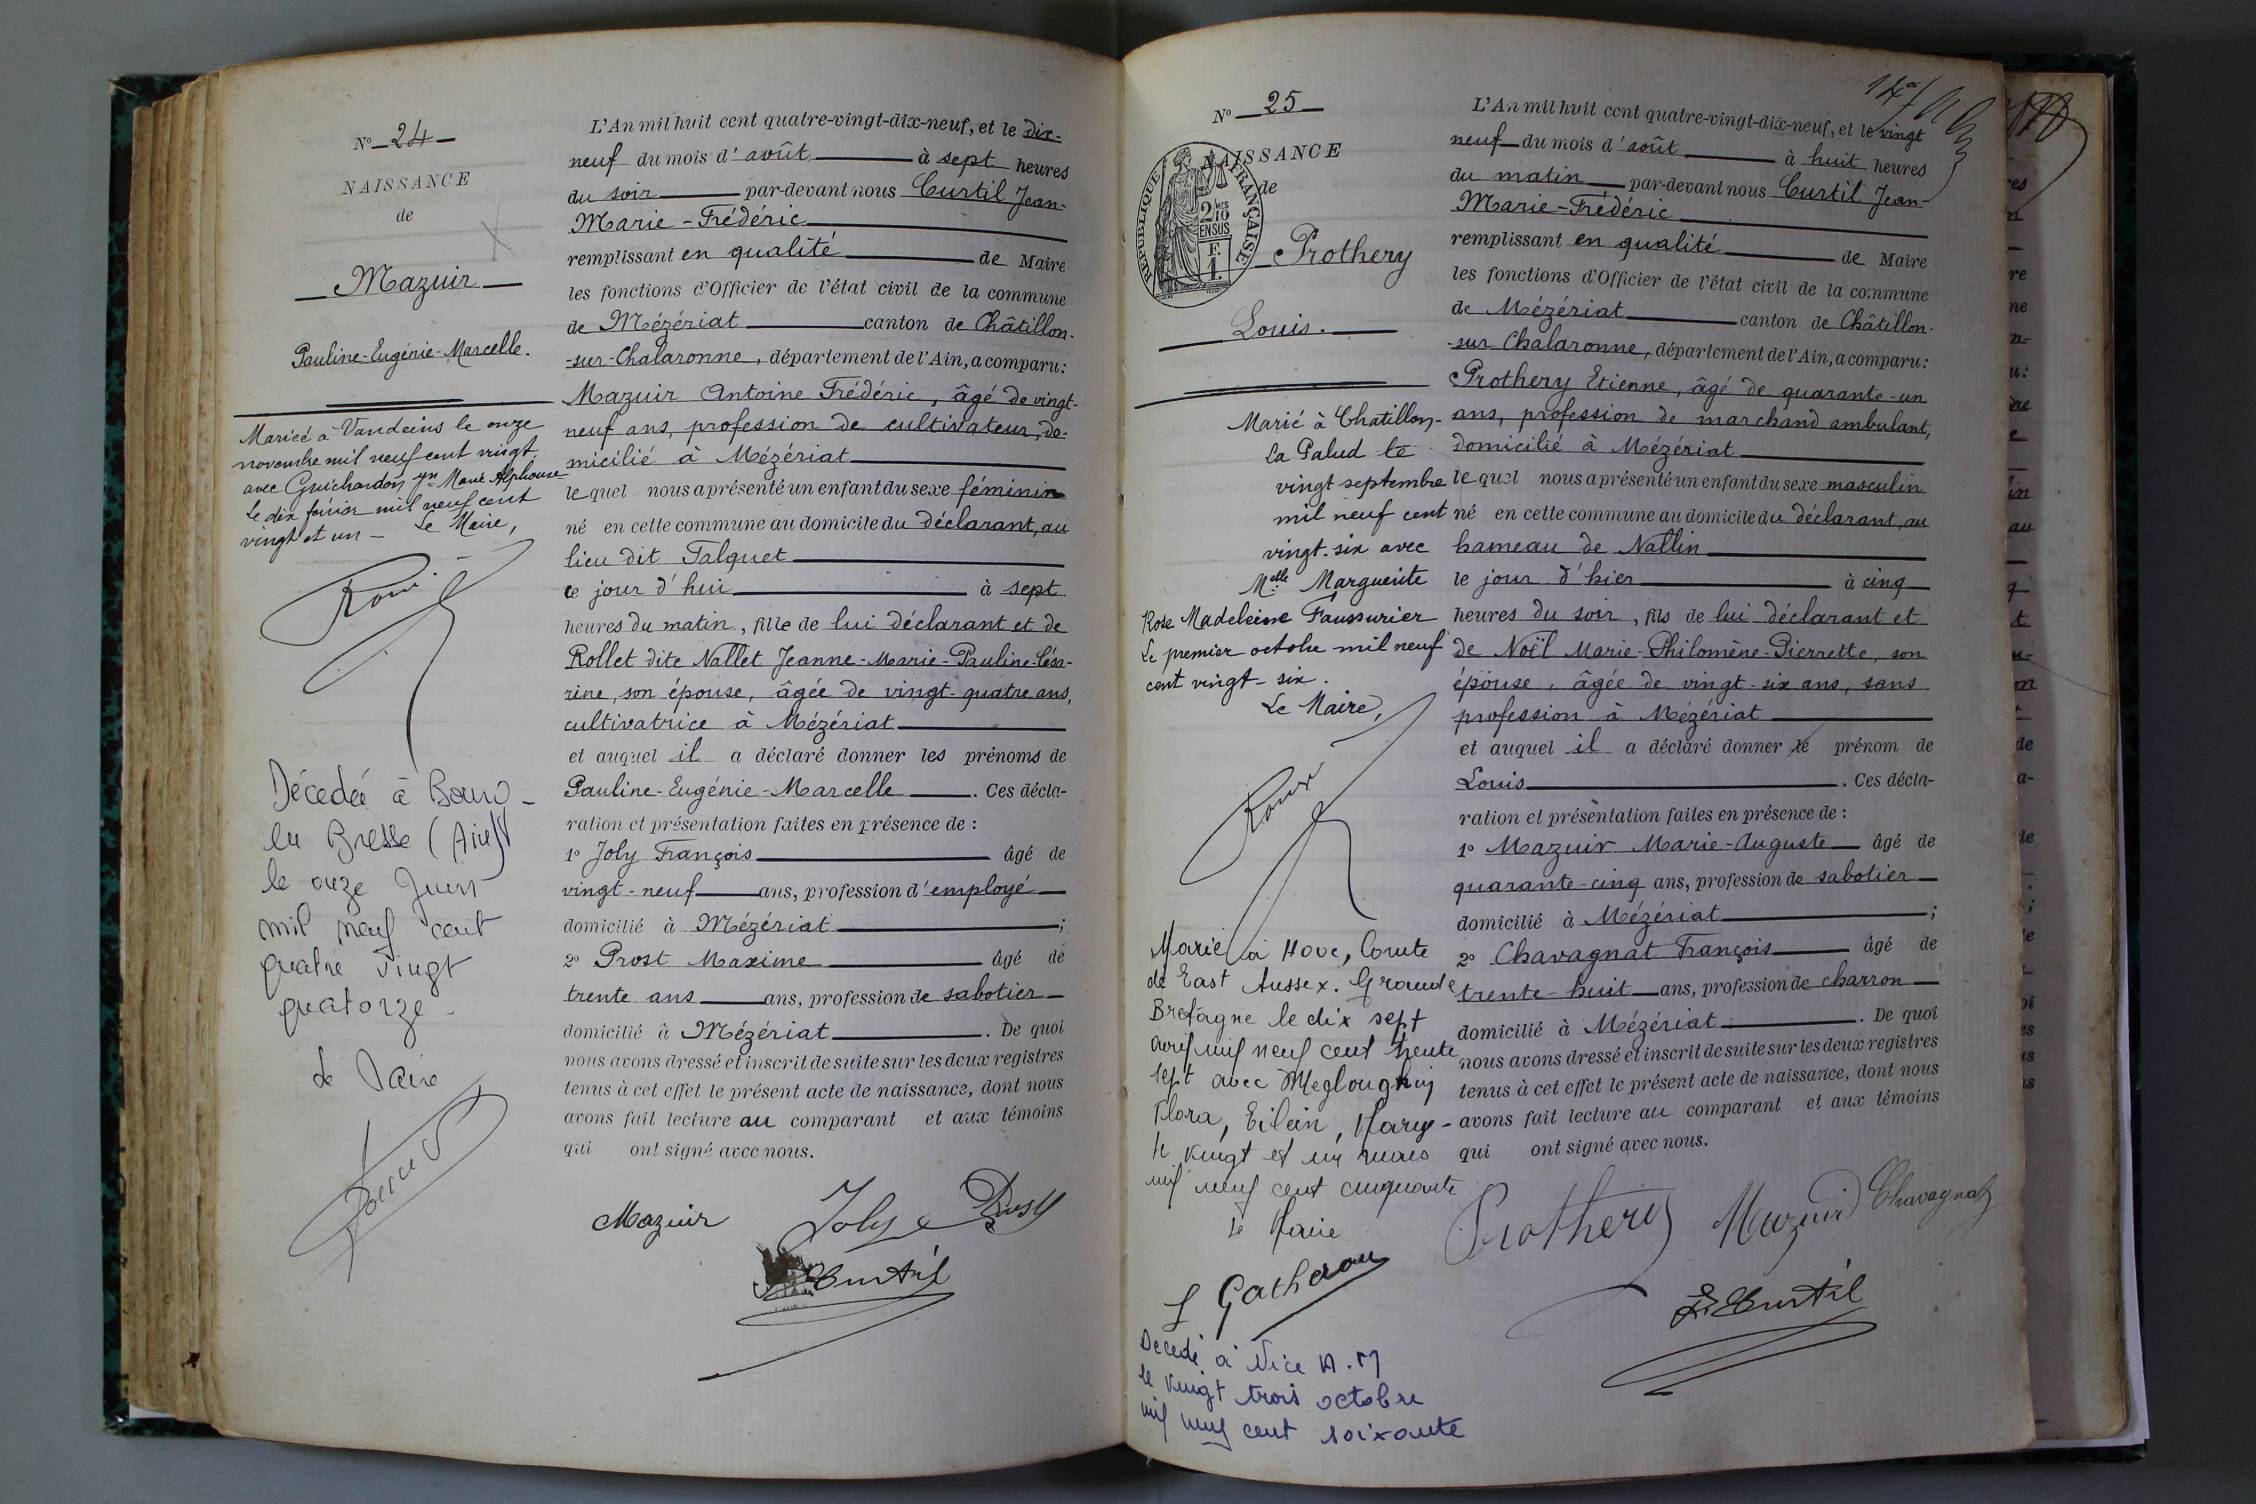 Nº 24
NAISSANCE
de
Mazuir
Pauline-Eugénie-Marcelle.
Mariée à Vandeins le onze
novembre mil neuf cent vingt
avec Guichardon Marie Alphonse
Le dix février mil neuf cent
vingt et un – Le Maire,
Décédée à Bourg-
en Bresse (Ain)
le onze Juin
mil neuf cent
quatre vingt
quatorze -
Le Maire
L'An mil huit cent quatre-vingt-dix-neuf, et le dix-
neuf du mois d'août à sept heures
du soir par-devant nous Curtil Jean-
Marie-Frédéric
remplissant en qualité de Maire
les fonctions d'Officier de l'état civil de la commune
de Mézériat canton de Châtillon-
-sur-Chalaronne, département de l'Ain, a comparu:
Mazuir Antoine Frédéric, âgé de vingt-
neuf ans, profession de cultivateur, do-
micilié à Mézériat
lequel nous a présenté un enfant du sexe féminin
né en cette commune au domicile du déclarant, au
lieu dit Talquet
ce jour d'hui à sept
heures du matin, fille de lui déclarant et de
Rollet dite Nallet Jeanne-Marie-Pauline-Césa-
rine, son épouse, âgée de vingt-quatre ans,
cultivatrice à Mézériat
et auquel il a déclaré donner les prénoms de
Pauline-Eugénie-Marcelle. Ces décla-
ration et présentation faites en présence de :
1º Joly François âgé de
vingt-neuf ans, profession d'employé
domicilié à Mézériat ;
2º Prost Maxime âgé de
trente ans ans, profession de sabotier
domicilié à Mézériat. De quoi
nous avons dressé et inscrit de suite sur les deux registres
tenus à cet effet le présent acte de naissance, dont nous
avons fait lecture au comparant et aux témoins
qui ont signé avec nous.
Mazuir Joly Prost
Curtil
Nº 25
NAISSANCE
de
RÉPUBLIQUE FRANÇAISE
2/10 MES
EN SUS
F.
1.
Prothery
Louis.
Marié à Chatillon-
La Palud le
vingt septembre
mil neuf cent
vingt-six avec
Melle Marguerite
Rose Madeleine Faussurier
Le premier octobre mil neuf
cent vingt-six.
Le Maire,
Roux
Marié à Hove, Comte
de East Sussex. Grande
Bretagne le dix sept
avril mil neuf cent trente
sept avec Megloughin
Flora, Eilein, Mary-
le vingt et un mars
mil neuf cent cinquante
Le Maire
Décédé à Nice A.M
le vingt trois octobre
mil neuf cent soixante
L'An mil huit cent quatre-vingt-dix-neuf, et le vingt
neuf du mois d'août à huit heures
du matin par-devant nous Curtil Jean-
Marie-Frédéric
remplissant en qualité de Maire
les fonctions d'Officier de l'état civil de la commune
de Mézériat canton de Châtillon-
-sur Chalaronne, département de l'Ain, a comparu:
Prothery Etienne, âgé de quarante-un
ans, profession de marchand ambulant,
domicilié à Mézériat
lequel nous a présenté un enfant du sexe masculin
né en cette commune au domicile du déclarant, au
hameau de Nallin
le jour d'hier à cinq
heures du soir, fils de lui déclarant et
de Noël Marie-Philomène-Pierrette, son
épouse, âgée de vingt-six ans, sans
profession à Mézériat
et auquel il a déclaré donner le prénom de
Louis. Ces décla-
ration et présentation faites en présence de :
1º Mazuir Marie-Auguste âgé de
quarante-cinq ans, profession de sabotier
domicilié à Mézériat ;
2º Chavagnat François âgé de
trente-huit ans, profession de charron
domicilié à Mézériat. De quoi
nous avons dressé et inscrit de suite sur les deux registres
tenus à cet effet le présent acte de naissance, dont nous
avons fait lecture au comparant et aux témoins
qui ont signé avec nous.
Prothery Mazuir Chavagnat
Curtil